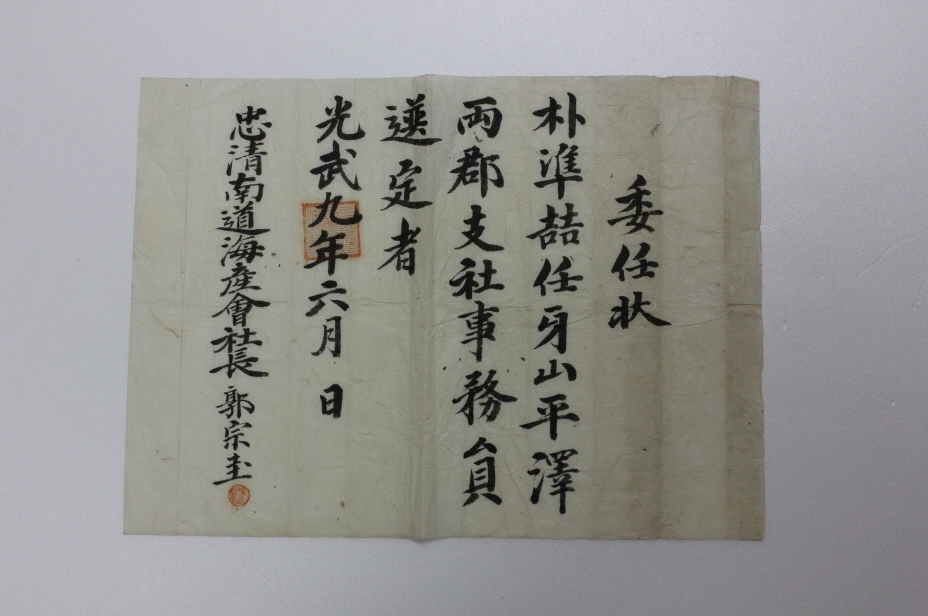 委任状
朴準喆任牙山平澤
両郡支社事務員
選定者
光武九年六月 日
忠清南道海産會社長 郭宗圭